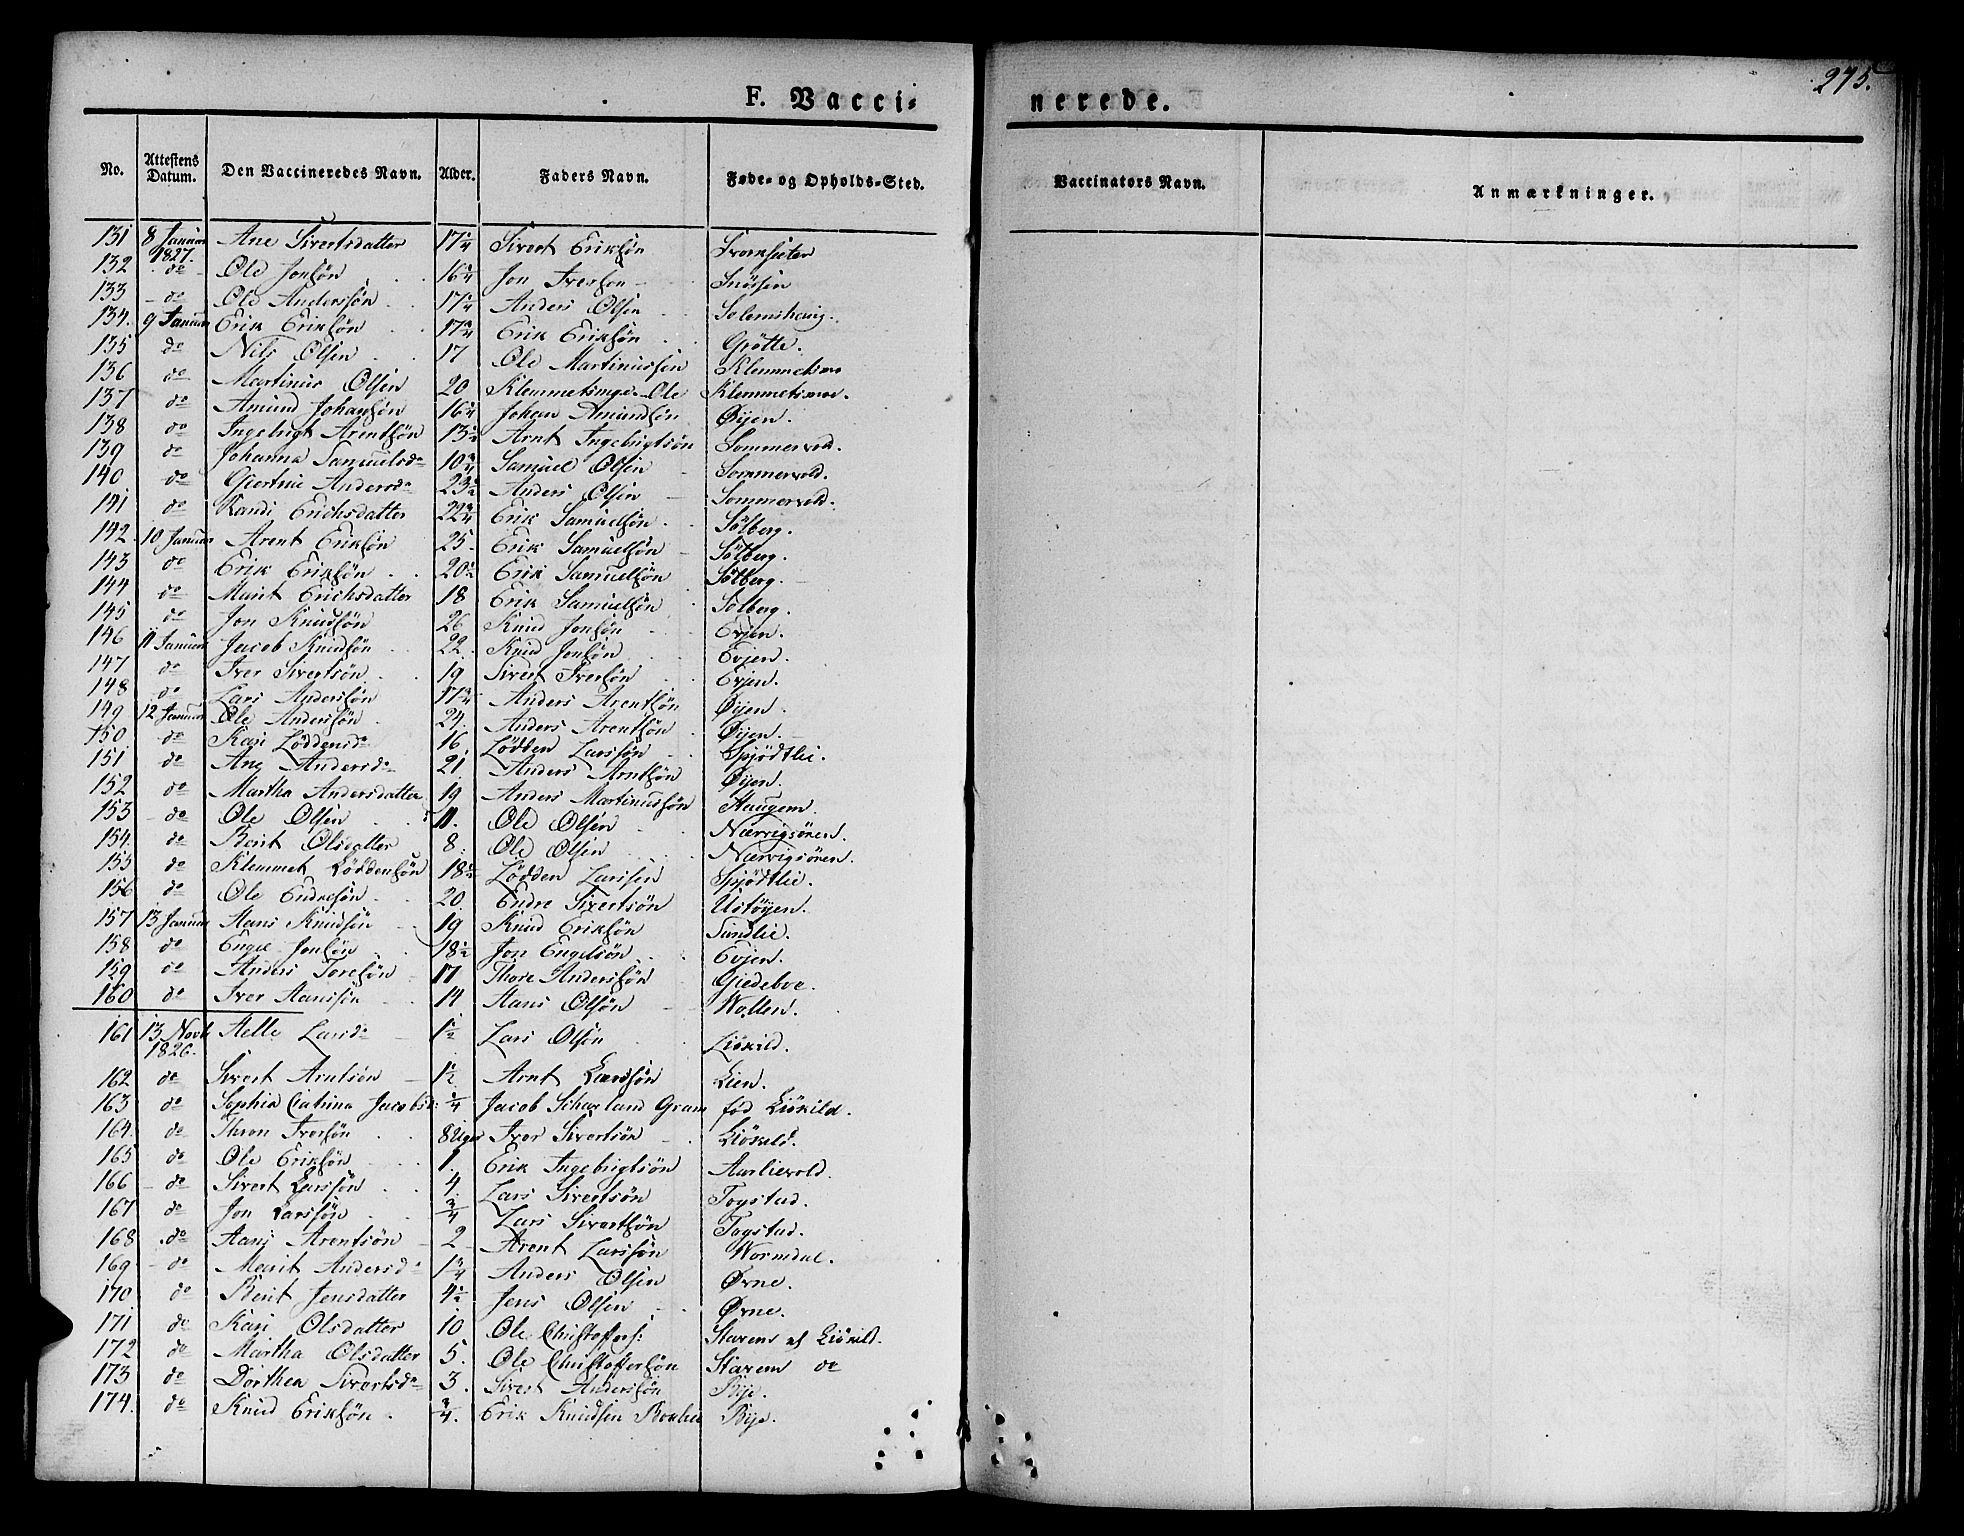 275.
F. Vacci-nerede.
No. Attestens Datum. Den Vaccineredes Navn. Alder. Faders Navn. Føde- og Opholds-Sted. Vaccinators Navn. Anmærkninger.
131 8 Januar 1827. Ane Sivertsdatter 17 1/4 Sivert Eriksøn
132 do Ole Jonsøn 16 1/4 Jon Iversøn Snösen
133 do Ole Andersøn 17 1/4 Anders Olsen Solemshaug.
134. 9 Januar Erik Eriksøn 17 3/4 Erik Eriksøn Grötte.
135 do Nils Olsen 17 Ole Martinussen Klemmetsmo
136 do Martinus Olsen 20 Klemmetsmo Ole Klemmetsmoe.
137 do Amund Johansøn 16 1/4 Johan Amundsøn Øyen.
138 do Ingebrigt Arentsøn 13 1/2 Arnt Ingebrigtsøn Sommervold.
139 do Johanna Samuelsdr 10 3/4 Samuel Olsen Sommervold.
140 do Giertrue Andersdr 23 1/2 Anders Olsen Sommervold.
141 do Randi Erichsdatter 22 3/4 Erik Samuelsøn. Sölberg.
142. 10 Januar Arent Eriksøn 25. Erik Samuelsøn Sölberg.
143 do Erik Eriksøn 20 1/2 Erik Samuelsøn Sölberg.
144 do Marit Erichsdatter 18 Erik Samuelsøn Solberg.
145 do Jon Knudsøn 26 Knud Jonsøn Evjen.
146 11 Januar Jacob Knudsøn 22. Knud Jonsøn Evjen.
147 do Iver Sivertsøn 19 Sivert Iversøn Evjen.
148 do Lars Andersøn 17 3/4 Anders Arentsøn Øyen.
149 12 Januar Ole Andersøn 24. Anders Arentsøn Øyen.
150 do Kari Löddensdr 16. Lödden Larssøn Spjödtlie.
151 do Ane Andersdr 21 Anders Arntsøn Øyen.
152 do Martha Andersdatter 19 Anders Martinussøn Haugen.
153 do Ole Olsen 11. Ole Olsen Nærvigsören.
154. do Berit Olsdatter 8. Ole Olsen Nærvigsören.
155 do Klemmet Löddensøn 18 1/2 Lödden Larssen Spjödtlie.
156 do Ole Endresøn 20 Endre Sivertsøn Ustöyen.
157 13 Januar Hans Knudsøn 19 Knud Eriksøn Sundlie.
158 do Engel Jonsøn 18 1/2 Jon Engelsøn Evjen.
159 do Anders Toresøn 17 Thore Andersøn Giedeboe.
160 do Iver Hansen 14 Hans Olsøn Wollen.
161 13 Novb 1826. Helle Larsdr 1 1/2 Lars Olsøn Liökild.
162 do Sivert Arntsøn 1 1/2 Arnt Larssøn Lien.
163 do Sophia Catrina Jacobsd: 1/4 Jacob Scharland Gram fød Liökild.
164. do Thron Iversøn 8 Uger Iver Sivertsøn Liökild.
165 do Ole Eriksøn 1. Erik Ingebrigtsøn Aarlievold.
166 do Sivert Larssøn 4 Lars Sivertsøn Togstad.
167 do Jon Larssøn 3/4 Lars Sivertsøn Togstad.
168 do Hans Arentsøn 2 Arent Larssøn Wormdal.
169 do Marit Andersdr 1 3/4 Anders Olsen Ørne.
170 do Berit Jensdatter 4 1/2 Jens Olsen Ørne.
171 do Kari Olsdatter 10 Ole Christoffers: Starem af Liökild.
172 do Martha Olsdatter 5. Ole Christoffersøn Starem do
173 do Dorthea Sivertsdr 3. Sivert Andersøn Bye.
174. do Knud Eriksøn 3/4. Erik Knudsen Bye.